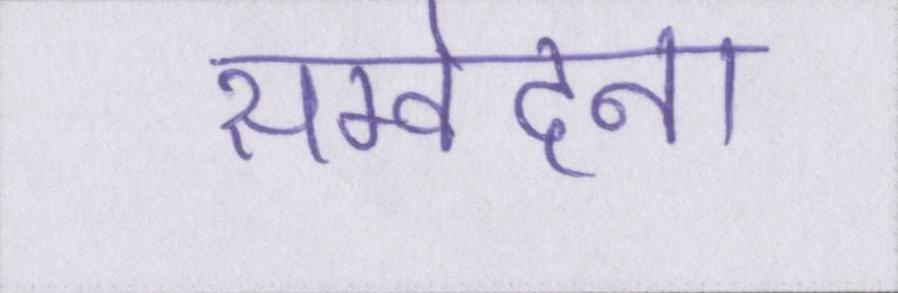 सम्वेदना